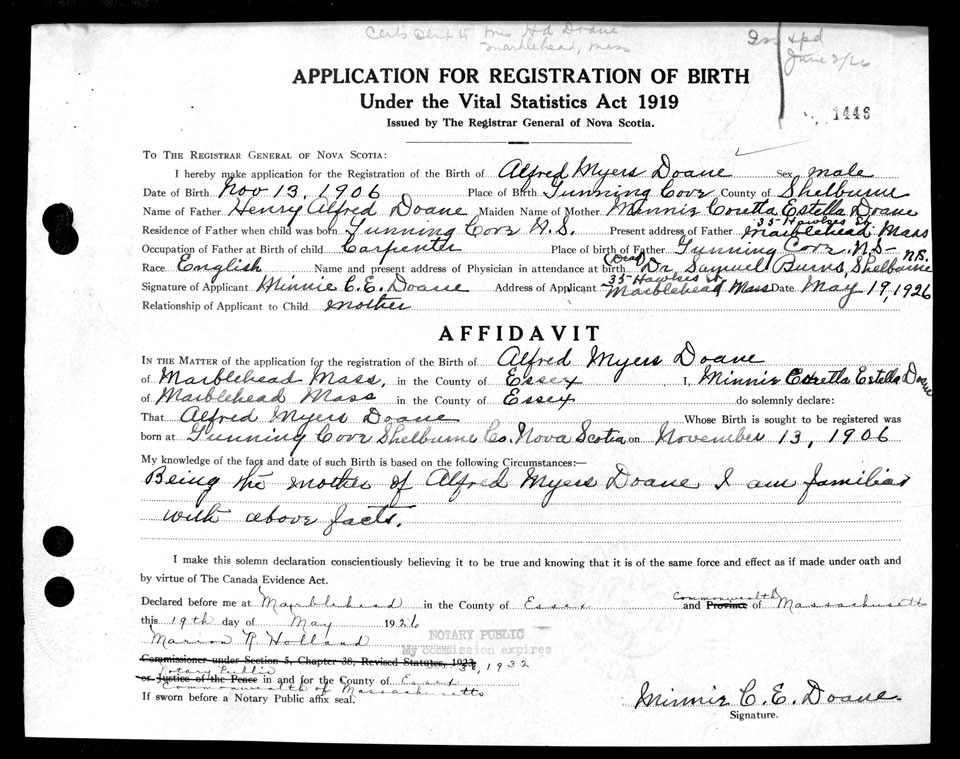 Cert. sent to Mrs H A Doane
Marblehead, Mass
pd
June 2/26
APPLICATION FOR REGISTRATION OF BIRTH
Under the Vital Statistics Act 1919
Issued by The Registrar General of Nova Scotia.
1446
To The Registrar General of Nova Scotia:
I hereby make application for the Registration of the Birth of Alfred Myers Doane Sex male
Date of Birth Nov 13, 1906 Place of Birth Gunning Cove County of Shelburne
Name of Father Henry Alfred Doane Maiden Name of Mother Minnie Coretta Estella Doane
Residence of Father when child was born Gunning Cove N.S. Present address of Father 35 Hawkes St Marblehead Mass
Occupation of Father at Birth of child Carpenter Place of birth of Father Gunning Cove N.S-
Race English Name and present address of Physician in attendance at birth (Dead) Dr Samuel Burns, Shelburne N.S.
Signature of Applicant Minnie C. E. Doane Address of Applicant 35 Hawkes St Marblehead Mass Date May 19, 1926
Relationship of Applicant to Child mother
AFFIDAVIT
In the Matter of the application for the registration of the Birth of Alfred Myers Doane
of Marblehead Mass, in the County of Essex I, Minnie Coretta Estella Doane
of Marblehead Mass in the County of Essex do solemnly declare:
That Alfred Myers Doane Whose Birth is sought to be registered was
born at Gunning Cove Shelburne Co. Nova Scotia on November 13, 1906
My knowledge of the fact and date of such Birth is based on the following Circumstances:—
Being the mother of Alfred Myers Doane I am familiar
with above facts.
I make this solemn declaration conscientiously believing it to be true and knowing that it is of the same force and effect as if made under oath and
by virtue of The Canada Evidence Act.
Declared before me at Marblehead in the County of Essex and Province Commonwealth of Massachusetts
this 19th day of May 1926
Marion R Holland
NOTARY PUBLIC
My commission expires
Commissioner under Section 5, Chapter 38, Revised Statutes, 1923
1932
Notary Public
or Justice of the Peace in and for the County of Essex
Commonwealth of Massachusetts
If sworn before a Notary Public affix seal.
Minnie C. E. Doane
Signature.